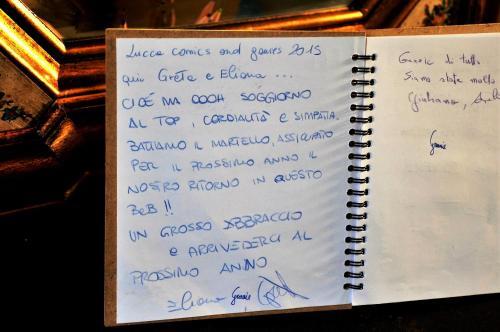 Lucca comics and games 2015
qui Greta e Eliana ...
CIOÈ MA OOOH SOGGIORNO
AL TOP, CORDIALITÀ E SIMPATIA.
BATTIAMO IL MARTELLO, ASSICURATO
PER IL PROSSIMO ANNO IL
NOSTRO RITORNO IN QUESTO
BeB !!
UN GROSSO ABBRACCIO
E ARRIVEDERCI AL
PROSSIMO ANNO
Eliana Grazie
Grazie di tutto
Siamo state molto
Giuliana,
Grazie